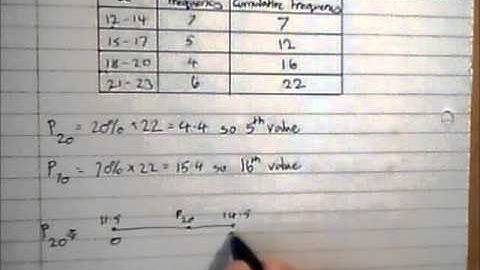 frequency Cumulative frequency
12-14 7 7
15-17 5 12
18-20 4 16
21-23 6 22
P20 = 20% × 22 = 4.4 so 5th value
P70 = 70% × 22 = 15.4 so 16th value
11.5 P20 14.5
P20 =
0